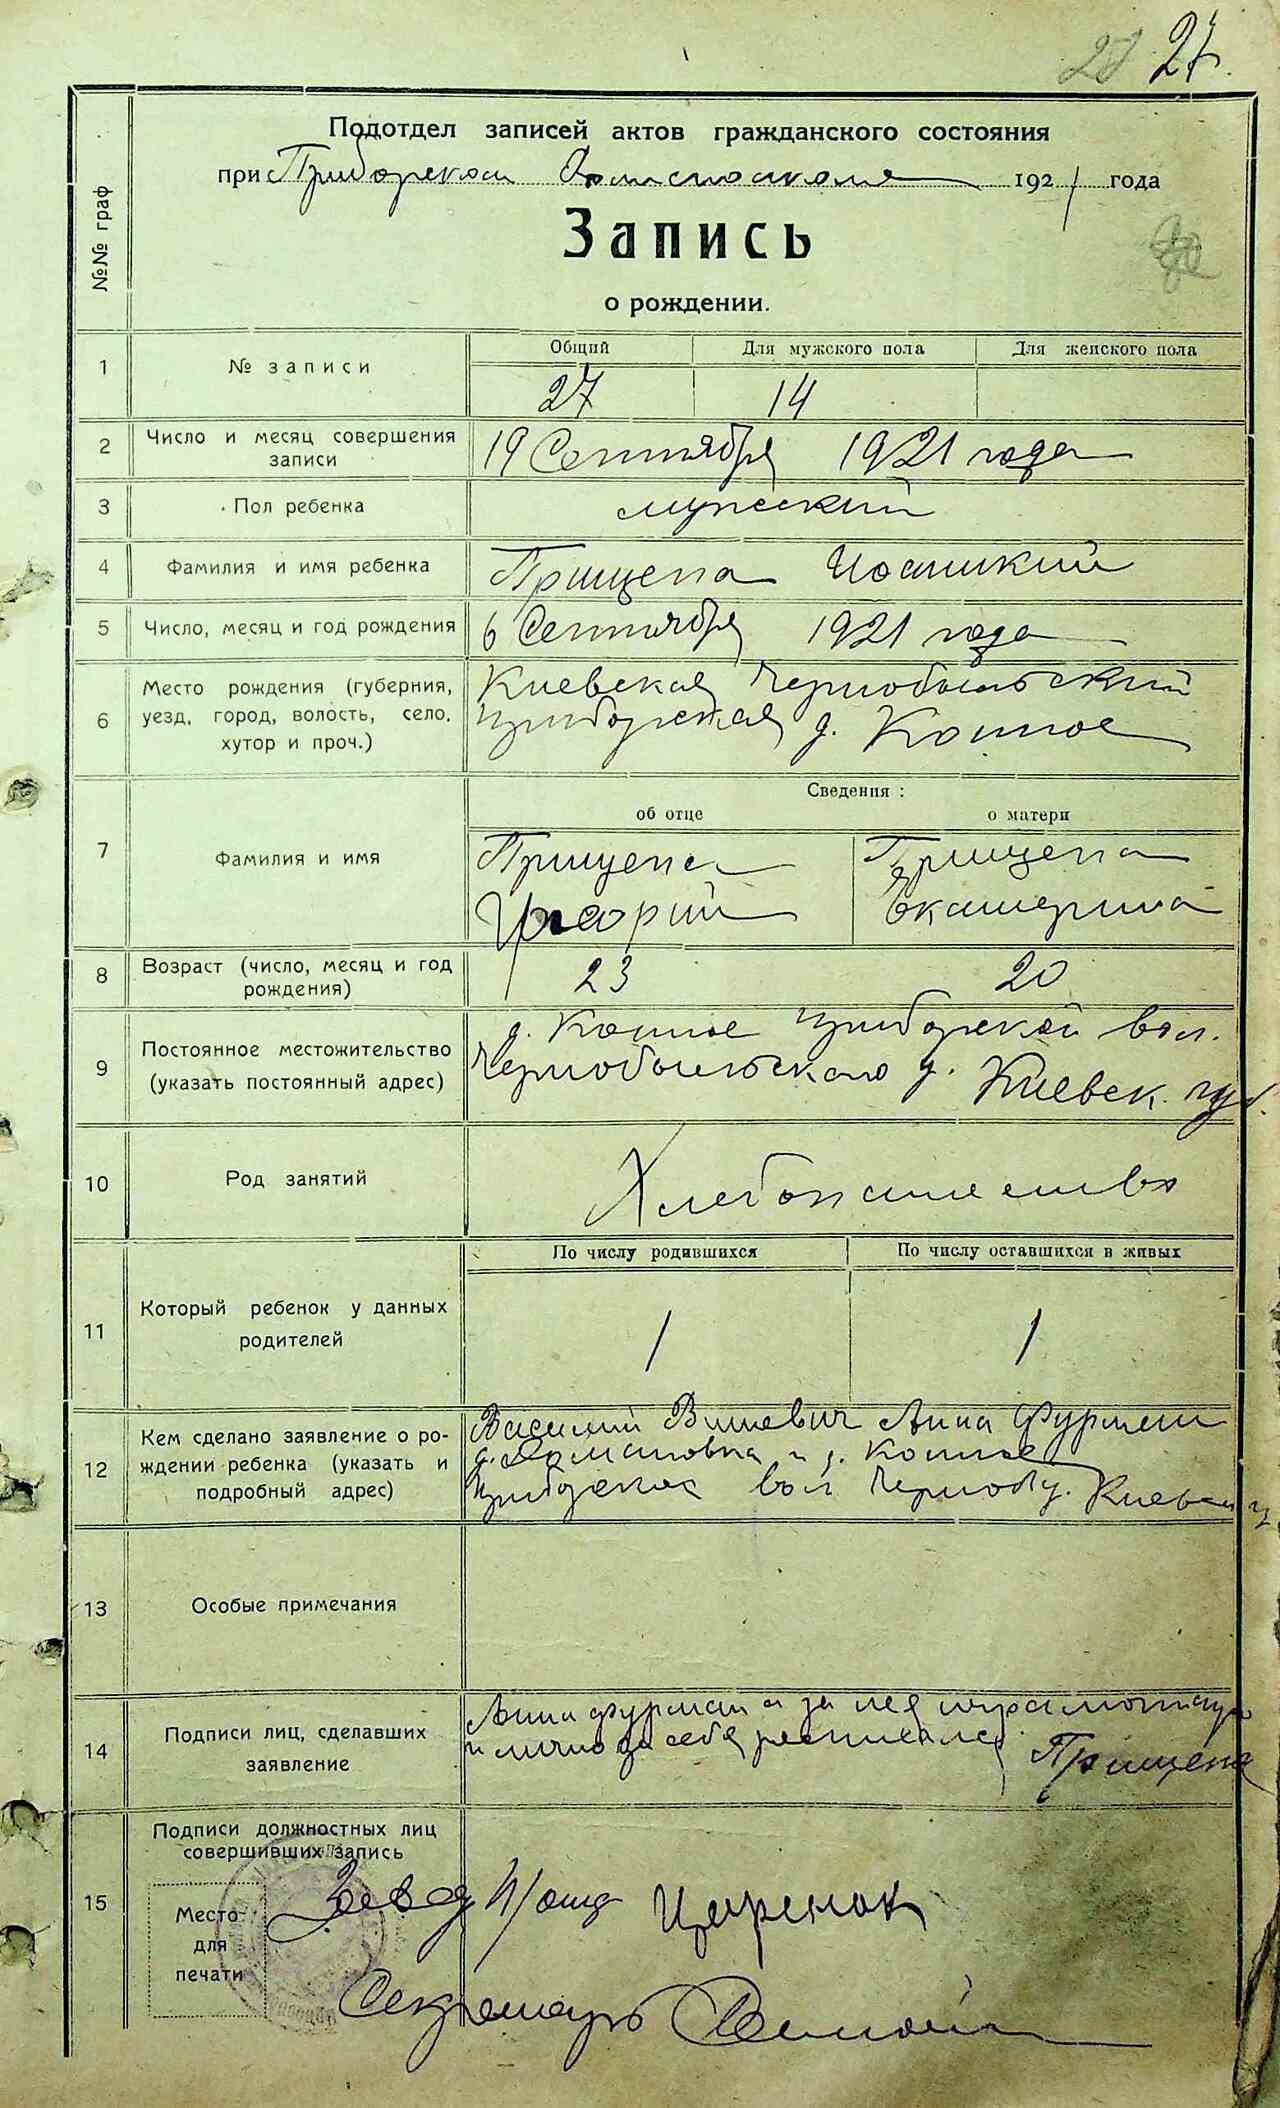 27
Подотдел записей актов гражданского состояния
при Приборском 1921 года
Запись
о рождении.
№№ граф
1 № записи
Общий Для мужского пола Для женского пола
27 14
2 Число и месяц совершения записи
19 Сентября 1921 года
3 Пол ребенка
мужеский
4 Фамилия и имя ребенка
Прищепа
5 Число, месяц и год рождения
6 Сентября 1921 года
6 Место рождения (губерния,
уезд, город, волость, село,
хутор и проч.)
Киевская Чернобыльский
Приборская д.
Сведения :
об отце о матери
7 Фамилия и имя
Прищепа Прищепа
Григорий Екатерина
8 Возраст (число, месяц и год
рождения)
23 20
9 Постоянное местожительство
(указать постоянный адрес)
д. Приборской вол.
Чернобыльского у. Киевск. губ.
10 Род занятий
Хлебопашество
По числу родившихся По числу оставшихся в живых
11 Который ребенок у данных
родителей
1 1
12 Кем сделано заявление о ро-
ждении ребенка (указать и
подробный адрес)
Василий Анна Фурман
д. и д.
вол. Киевск
13 Особые примечания
14 Подписи лиц, сделавших
заявление
Анна Фурман а за нея неграмотную
и лично за себя
Прищепа
15 Подписи должностных лиц
совершивших запись
Место
для
печати
Завед
Секретарь